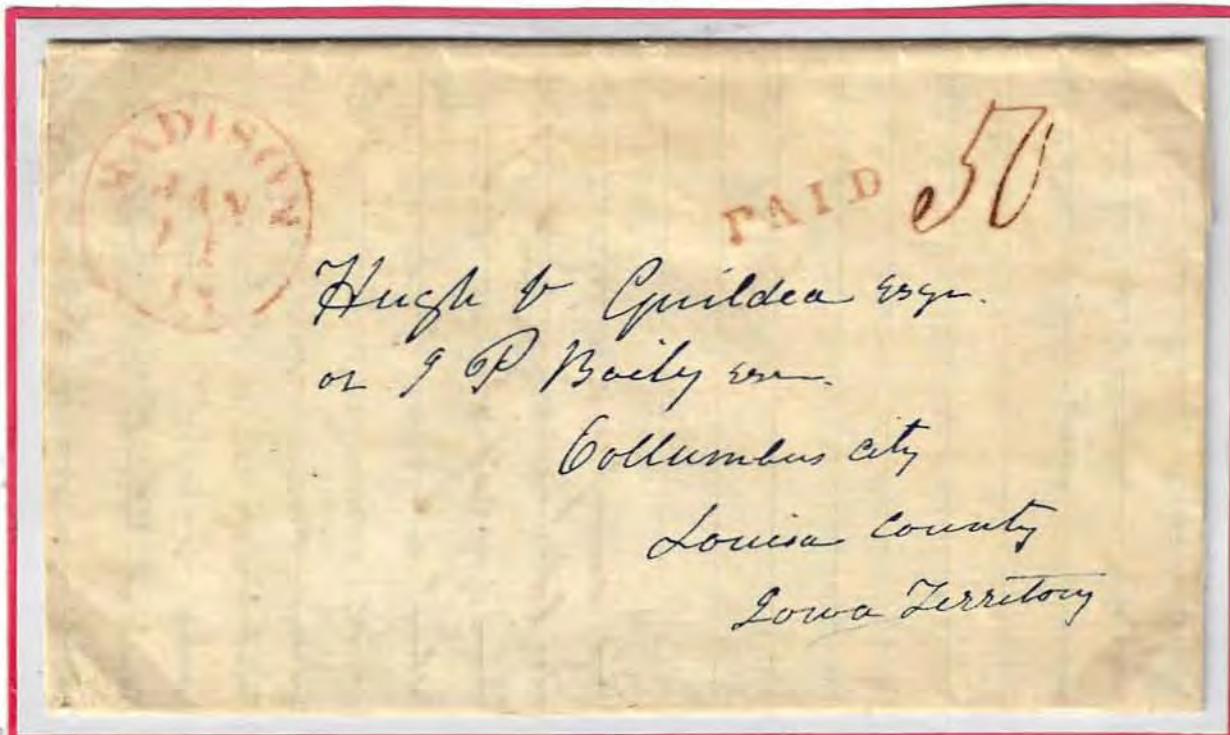 MADISON
JAN
PAID 50
Hugh V Guildea Esqr.
or J P Baily esr.
Collumbus City
Louisa County
Iowa Territory